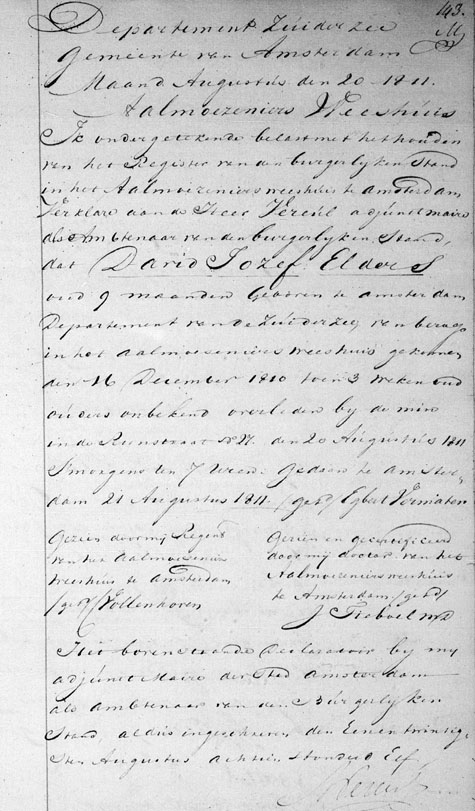 143.
M
Departement Zuiderzee
Gemeente van Amsterdam
Maand Augustús den 20 - 1811.
Aalmoezeniers Weeshúis
Ik ondergetekende belast met het houden
van het Register van den burgerlyken Stand
in het Aalmoezeniers weeshuis te amsterdam
Verklare aan de Heer Vereúl adjúnct maire
als Ambtenaar van den burgerlyken Stand,
dat David Jozef Elders
oud 9 maanden Geboren te amsterdam
Departement van de Zúiderzeg van beroep
in het aalmoeseniers weeshuis gekomen
den 16 December 1810 toen 3 weken oud
oúders onbekend overleden by de min
in de Reenstraat No 27. den 20 Augústús 1811
Smorgens ten 7 Uren. Gedaan te amster,,
dam 21 Augustus 1811. /get/ Egbert Vermaten
Gezien door my Regent
van het Aalmoesenier
weeshuis te Amsterdam
/get/ Vollenhoven
Gezien en gecertificeerd
door my doctor van het
Aalmoeseniers weeshuis
te Amsterdam /get/
J Roboel md
Het bovenstaande declaratoir by my
adjúnct Maire der Stad amsterdam
als ambtenaar van den Búrgerlyken
Stand, aldús ingeschreven den Eenentwintig
sten Augustus achtien honderd Elf.